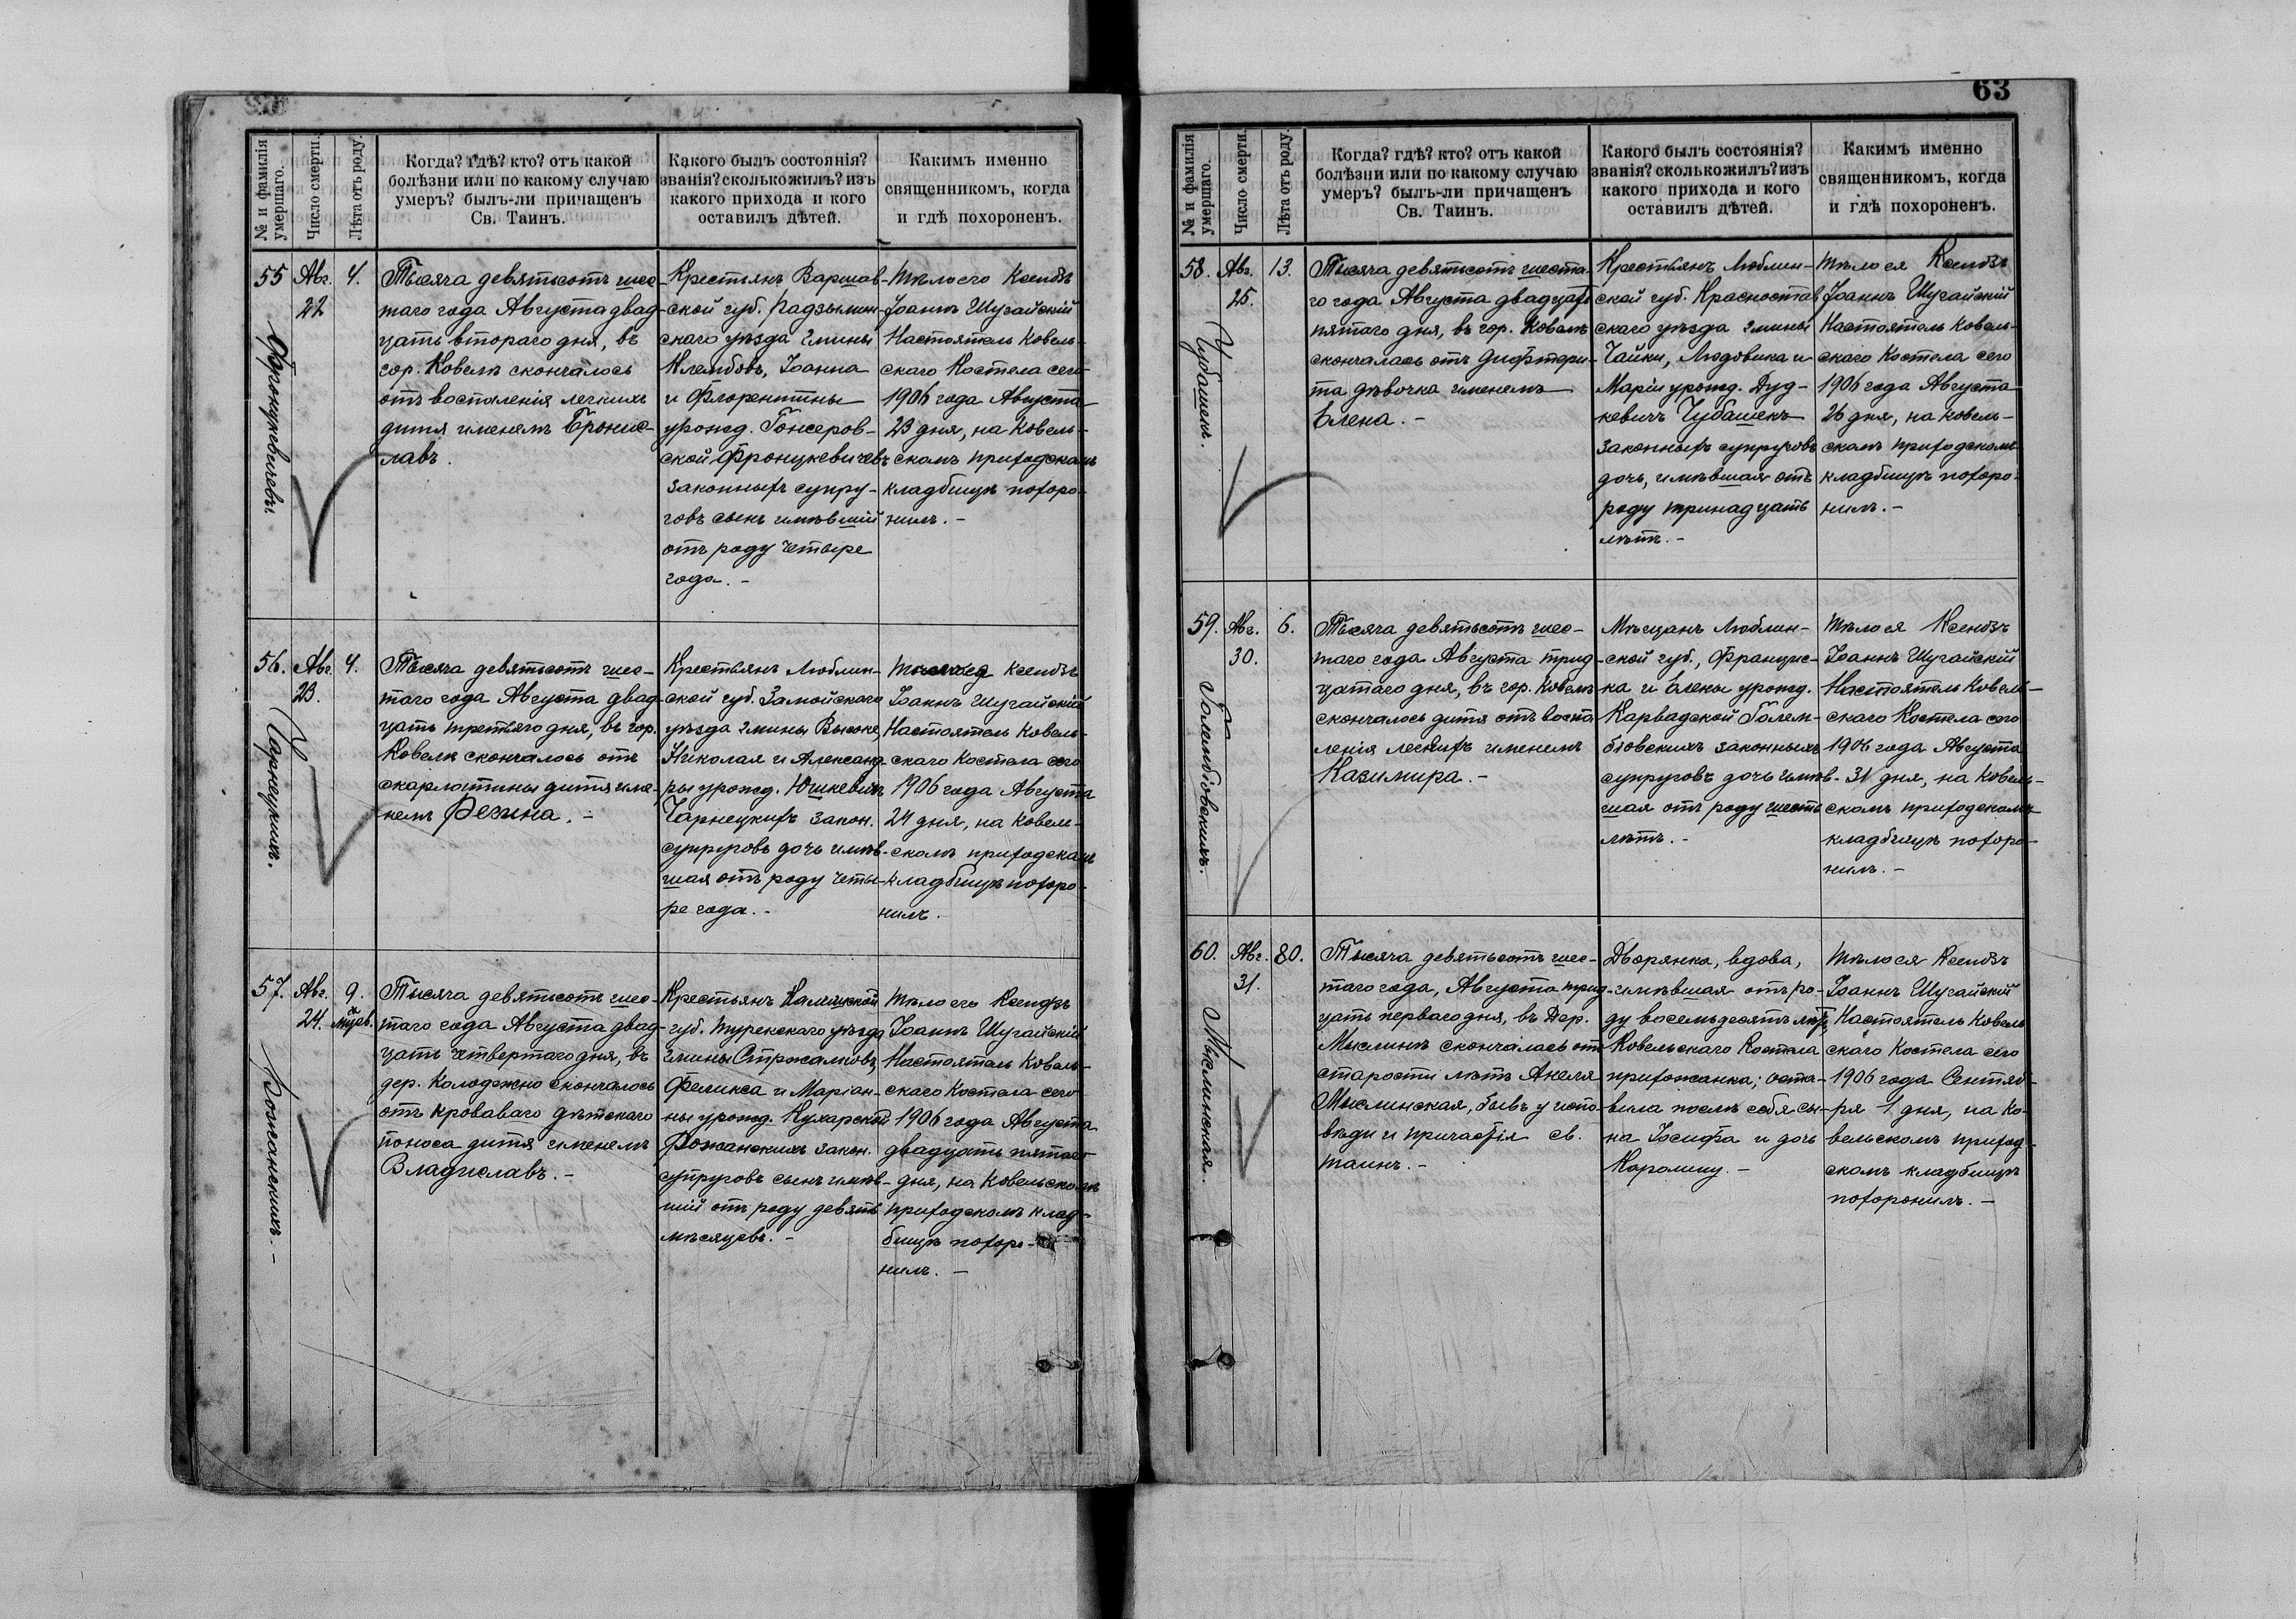 63
№ и фамилія умершаго.
Число смерти.
Лѣта отъ роду.
Когда? гдѣ? кто? отъ какой
болѣзни или по какому случаю
умеръ? былъ-ли причащенъ
Св. Таинъ.
Какого былъ состоянія?
званія? сколько жилъ? изъ
какого прихода и кого
оставилъ дѣтей.
Какимъ именно
священникомъ, когда
и гдѣ похороненъ.
55
Авг.
22
4.
Тысяча девятьсотъ шес-
таго года Августа двад-
цать втораго дня, въ
гор. Ковелѣ скончалось
отъ воспаленія легкихъ
дитя именемъ Бронис-
лавъ.
Крестьянъ Варшав-
ской губ. Радзымин-
скаго уѣзда гмины
Клембовъ, Іоанна
и Флорентины
урожд. Гонсеров-
ской Фронцкевичевъ
законныхъ супру-
говъ сынъ имѣвшій
отъ роду четыре
года. -
Тѣло его Ксендзъ
Іоаннъ Шугайскій
Настоятель Ковель-
скаго Костела сего
1906 года Августа
23 дня, на Ковель-
скомъ приходскомъ
кладбищѣ похоро-
нилъ. -
56.
Авг.
23.
4.
Чарнецкихъ.
Тысяча девятьсотъ шес-
таго года Августа двад-
цать третьяго дня, въ гор.
Ковелѣ скончалось отъ
скарлатины дитя име-
немъ Регина. -
Крестьянъ Люблин-
ской губ. Замойскаго
уѣзда гмины Высоке,
Николая и Александ-
ры урожд. Юшкевичъ
Чарнецкихъ закон.
супруговъ дочь имѣв-
шая отъ роду четы-
ре года. -
Тѣло ея Ксендзъ
Іоаннъ Шугайскій
Настоятель Ковель-
скаго Костела сего
1906 года Августа
24 дня, на Ковель-
скомъ приходскомъ
кладбищѣ похоро-
нилъ.
57.
Авг.
24.
9.
Рожанскихъ. -
Тысяча девятьсотъ шес-
таго года Августа двад-
цать четвертаго дня, въ
дер. Колодежно скончалось
отъ кроваваго дѣтскаго
поноса дитя именемъ
Владиславъ. -
Крестьянъ Калишской
губ. Турекскаго уѣзда
гмины
Феликса и Маріан-
ны урожд. Кухарской
Рожанскихъ закон.
супруговъ сынъ имѣв-
шій отъ роду девять
мѣсяцевъ. -
Тѣло его Ксендзъ
Іоаннъ Шугайскій
Настоятель Ковель-
скаго Костела сего
1906 года Августа
двадцать пятаго
дня, на Ковельскомъ
приходскомъ клад-
бищѣ похоро-
нилъ. -
№ и фамилія умершаго.
Число смерти.
Лѣта отъ роду.
Когда? гдѣ? кто? отъ какой
болѣзни или по какому случаю
умеръ? былъ-ли причащенъ
Св. Таинъ.
Какого былъ состоянія?
званія? сколько жилъ? изъ
какого прихода и кого
оставилъ дѣтей.
Какимъ именно
священникомъ, когда
и гдѣ похороненъ.
58.
Авг.
25.
13.
Чубашекъ.
Тысяча девятьсотъ шеста-
го года Августа двадцать
пятаго дня, въ гор. Ковелѣ
скончалась отъ дифтери-
та дѣвочка именемъ
Елена. -
Крестьянъ Люблин-
ской губ. Красностав-
скаго уѣзда гмины
Чайки, Людовика и
Маріи урожд. Дуд-
кевичъ Чубашекъ
законныхъ супруговъ
дочь, имѣвшая отъ
роду тринадцать
лѣтъ. -
Тѣло ея Ксендзъ
Іоаннъ Шугайскій
Настоятель Ковель-
скаго Костела сего
1906 года Августа
26 дня, на Ковель-
скомъ приходскомъ
кладбищѣ похоро-
нилъ. -
59.
Авг.
30.
6.
Голембіовскихъ.
Тысяча девятьсотъ шес-
таго года Августа трид-
цатаго дня, въ гор. Ковелѣ
скончалось дитя отъ воспа-
ленія легкихъ именемъ
Казимира. -
Мѣщанъ Люблин-
ской губ., Францис-
ка и Елены урожд.
Карвадской Голем-
біовскихъ законныхъ
супруговъ дочь имѣв-
шая отъ роду шесть
лѣтъ. -
Тѣло ея Ксендзъ
Іоаннъ Шугайскій
Настоятель Ковель-
скаго Костела сего
1906 года Августа
31 дня, на Ковель-
скомъ приходскомъ
кладбищѣ похоро-
нилъ. -
60.
Авг.
31.
80.
Мыслинская.
Тысяча девятьсотъ шес-
таго года, Августа трид-
цать перваго дня, въ Дер.
Мыслинѣ скончалась отъ
старости лѣтъ Анеля
Мыслинская, бывъ у испо-
вѣди и причастія св.
таинъ. -
Дворянка, вдова,
имѣвшая отъ ро-
ду восемьдесятъ лѣтъ,
Ковельскаго Костела
прихожанка; оста-
вила послѣ себя сы-
на Іосифа и дочь
Каролину. -
Тѣло ея Ксендзъ
Іоаннъ Шугайскій
Настоятель Ковель-
скаго Костела сего
1906 года Сентяб-
ря 1 дня, на Ко-
вельскомъ приход-
скомъ кладбищѣ
похоронилъ. -